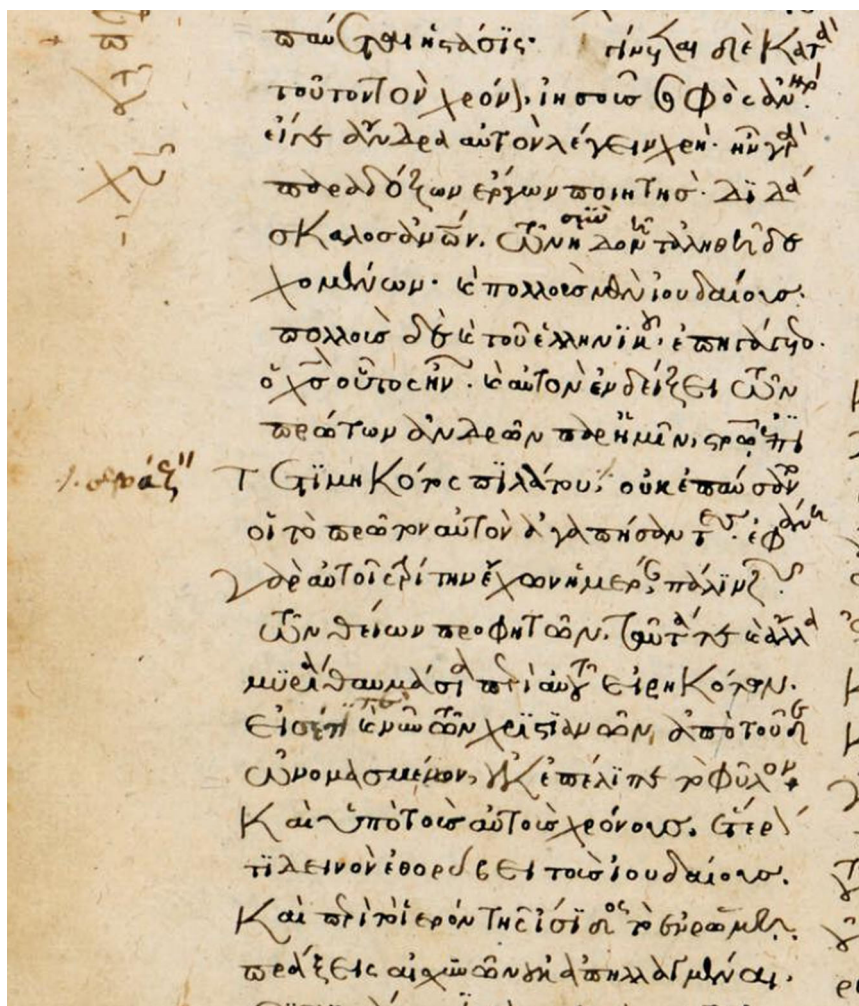 παύεται ἡ στάσις· γίνεται δὲ κατὰ
τοῦτον τὸν χρόνον, ἰησοῦς σοφὸς ἀνήρ·
εἴγε ἄνδρα αὐτὸν λέγειν χρή· ἦν γὰρ
παραδόξων ἔργων ποιητής· διδά
σκαλος ἀνων. τῶν ἡδονῆ τἀληθῆ δε
χομένων· καὶ πολλοὺς μὲν ἰουδαίους·
πολλοὺς δὲ καὶ τοῦ ἑλληνικοῦ· ἐπηγάγετο·
ὁ χς οὗτος ἦν· καὶ αὐτὸν ἐνδείξει τῶν
πρώτων ἀνδρῶν παρ ἡμῖν, στρω ἐπι
τετιμηκότος πιλάτου, οὐκ ἐπαύσαν
οἱ τὸ πρῶτον αὐτὸν ἀγαπήσαντες· ἐφάνη
γὰρ αὐτοῖς τρίτην ἔχων ἡμέραν πάλιν ζῶν
τῶν θείων προφητῶν, ταῦτά τε καὶ ἄλλα
μυρία θαυμάσια περὶ αὐτοῦ εἰρηκότων·
εἰσέτι νῦν τῶν χριστιανῶν ἀπὸ τοῦδε
ὠνομασμένων, οὐκ ἐπέλιπε τὸ φῦλον·
Καὶ ὑπὸ τοὺς αὐτοὺς χρόνους. ἕτερόν
τι δεινὸν ἐθορύβει τοὺς ἰουδαίους.
Καὶ περὶ τὸ ἱερὸν τῆς ἴσιδος τὸ ἐν ῥώμη.
πράξεις αἰσχυνῶν οὐκ ἀπηλλαγμέναι.